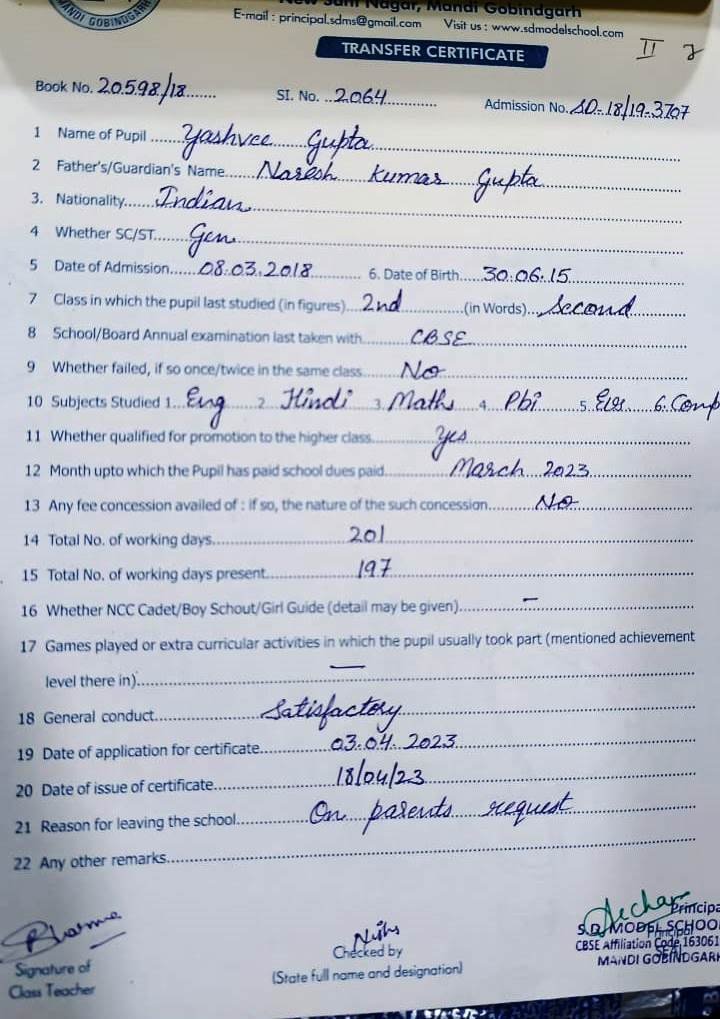 MANDI GOBINDGARH
New Sant Nagar, Mandi Gobindgarh
E-mail : principal.sdms@gmail.com Visit us : www.sdmodelschool.com
TRANSFER CERTIFICATE
II
Book No. 20598/18 SI. No. 2064 Admission No. SD-18/19-3707
1 Name of Pupil Yashvee Gupta
2 Father's/Guardian's Name Naresh Kumar Gupta
3. Nationality Indian
4 Whether SC/ST Gen
5 Date of Admission 08.03.2018 6. Date of Birth 30.06.15
7 Class in which the pupil last studied (in figures) 2nd (in Words) Second
8 School/Board Annual examination last taken with CBSE
9 Whether failed, if so once/twice in the same class No
10 Subjects Studied 1. Eng 2 Hindi 3. Maths 4. Pbi 5. EVS 6. Comp
11 Whether qualified for promotion to the higher class yes
12 Month upto which the Pupil has paid school dues paid March 2023
13 Any fee concession availed of : if so, the nature of the such concession No
14 Total No. of working days 201
15 Total No. of working days present 197
16 Whether NCC Cadet/Boy Schout/Girl Guide (detail may be given) –
17 Games played or extra curricular activities in which the pupil usually took part (mentioned achievement
level there in) —
18 General conduct Satisfactory
19 Date of application for certificate 03.04.2023
20 Date of issue of certificate 18/04/23
21 Reason for leaving the school On parents request
22 Any other remarks
Signature of
Class Teacher
Checked by
(State full name and designation)
Principal
S.D. MODEL SCHOOL
CBSE Affiliation Code 163061
MANDI GOBINDGARH